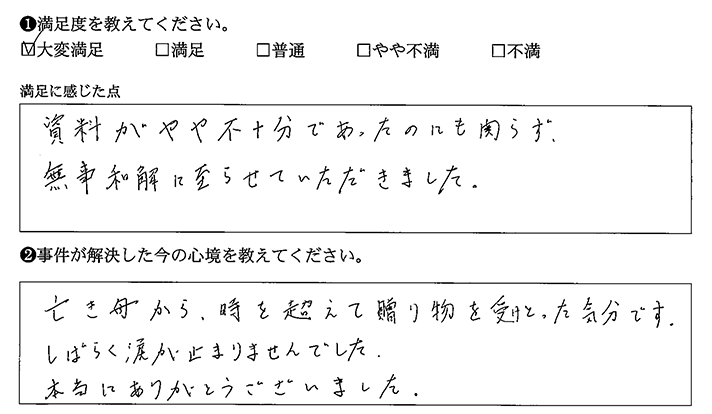 ❶満足度を教えてください。
☑大変満足 □満足 □普通 □やや不満 □不満
満足に感じた点
資料がやや不十分であったのにも関らず、
無事和解に至らせていただきました。
❷事件が解決した今の心境を教えてください。
亡き母から、時を超えて贈り物を受けとった気分です。
しばらく涙が止まりませんでした。
本当にありがとうございました。